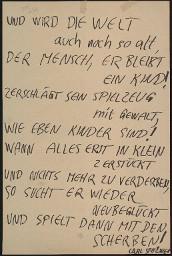 UND WIRD DIE WELT
auch noch so alt,
DER MENSCH, ER BLEIBT
EIN KIND!
ZERSCHLÄGT SEIN SPIELZEUG
mit GEWALT,
WIE EBEN KINDER SIND!
WANN ALLES ERST IN KLEIN
ZERSTÜCKT
UND NICHTS MEHR ZU VERDERBEN,
SO SUCHT ER WIEDER
NEUBEGLÜCKT
UND SPIELT DANN MIT DEN
SCHERBEN!
CARL SPITZWEG